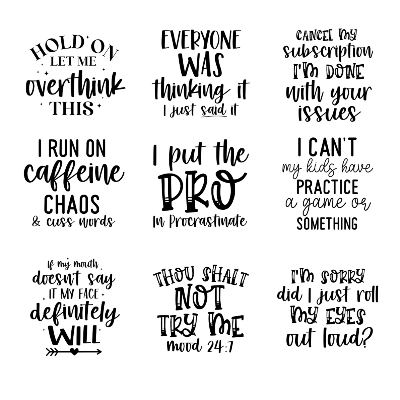 HOLD ON
LET ME
overthink
THIS
EVERYONE
WAS
thinking it
I just said it
CANCEL MY
subscription
I'M DONE
with your
issues
I RUN ON
caffeine
CHAOS
& cuss words
I put the
PRO
In Procrastinate
I CAN'T
my kids have
PRACTICE
a game or
SOMETHING
If my mouth
doesn't say
IT MY FACE
definitely
WILL
THOU SHALT
NOT
TRY ME
Mood 24:7
I'M SORRY
did I just roll
MY EYES
out loud?